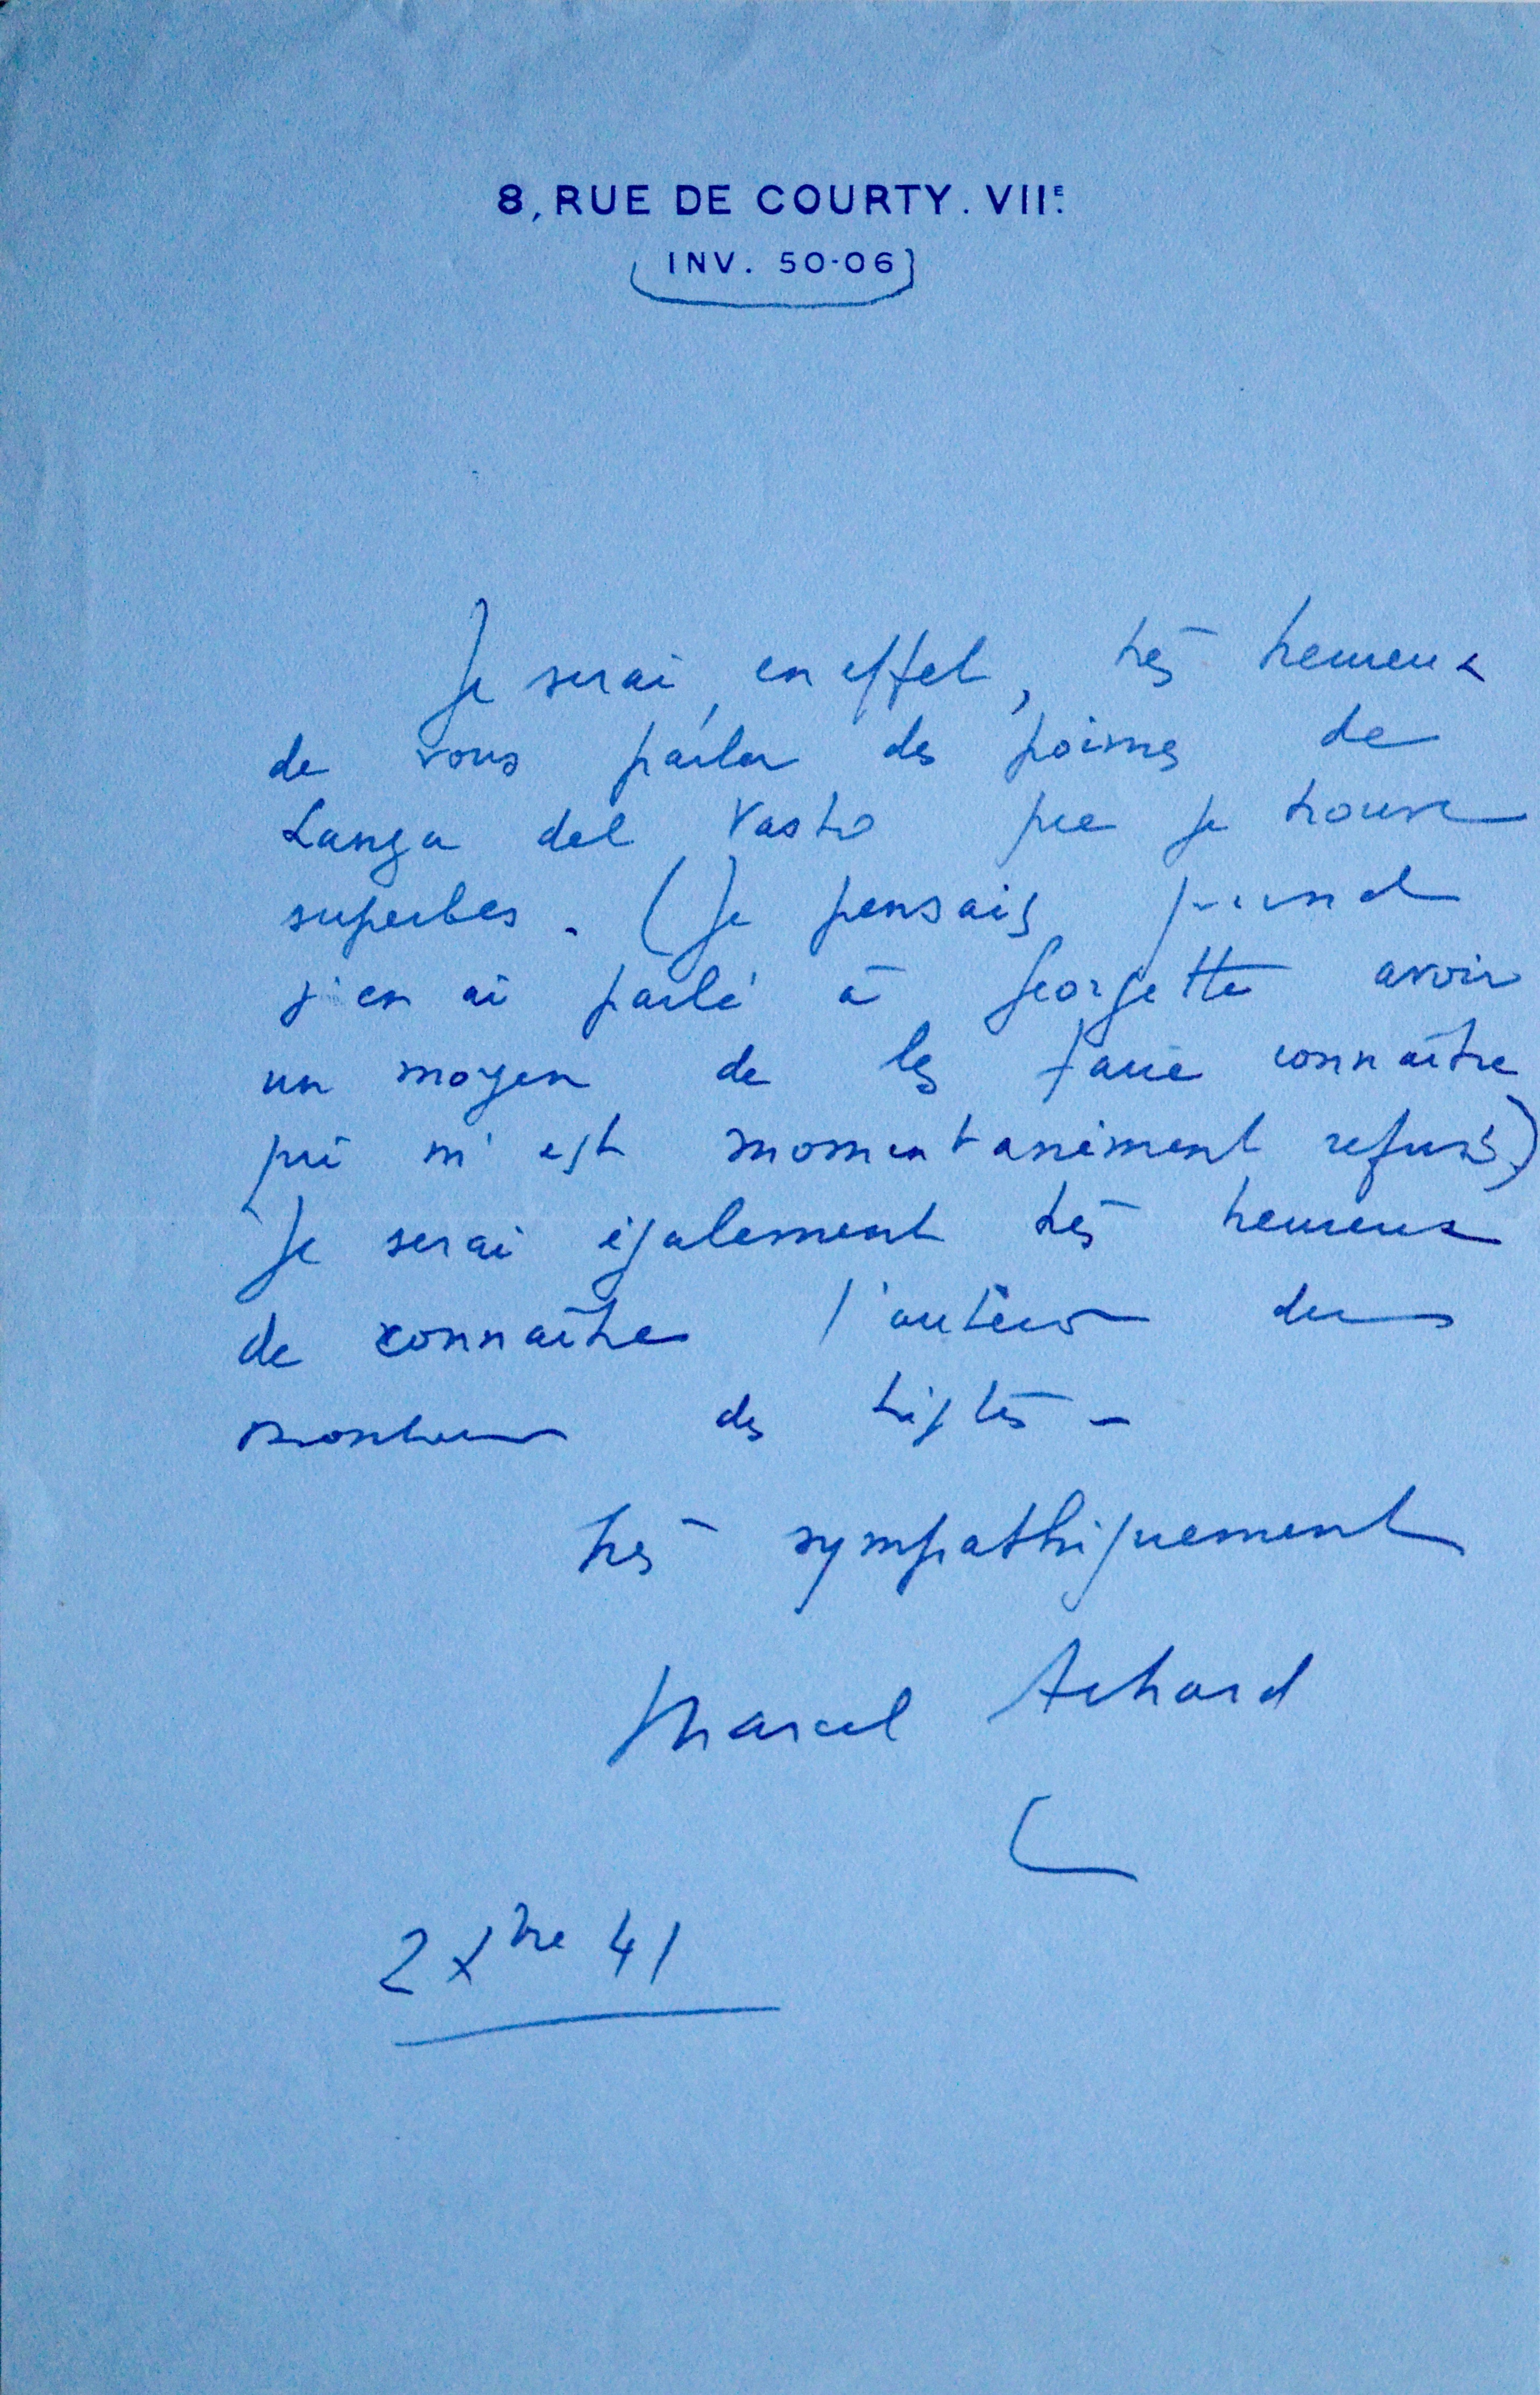 8, RUE DE COURTY. VIIE.
INV. 50-06
Je serai, en effet, très heureux
de vous parler des poèmes de
Lanza del Vasto que je trouve
superbes. (Je pensais quand
j'en ai parlé à Georgette avoir
un moyen de les faire connaître
qui m'est momentanément refusé)
Je serai également très heureux
de connaître l'auteur du
des tristes -
très sympathiquement
Marcel Achard
2 Xbre 41